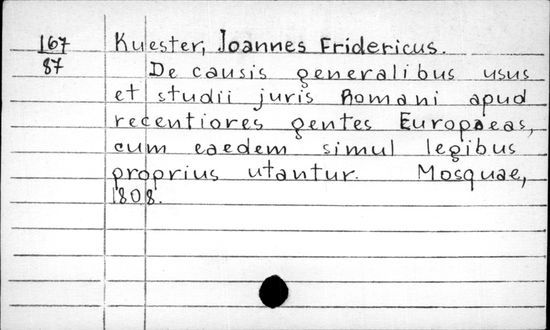 167 Kuester, Joannes Fridericus.
87 De causis generalibus usus
et studii juris Romani apud
recentiores gentes Europaeas,
cum eaedem simul legibus
proprius utantur. Mosquae,
1808.